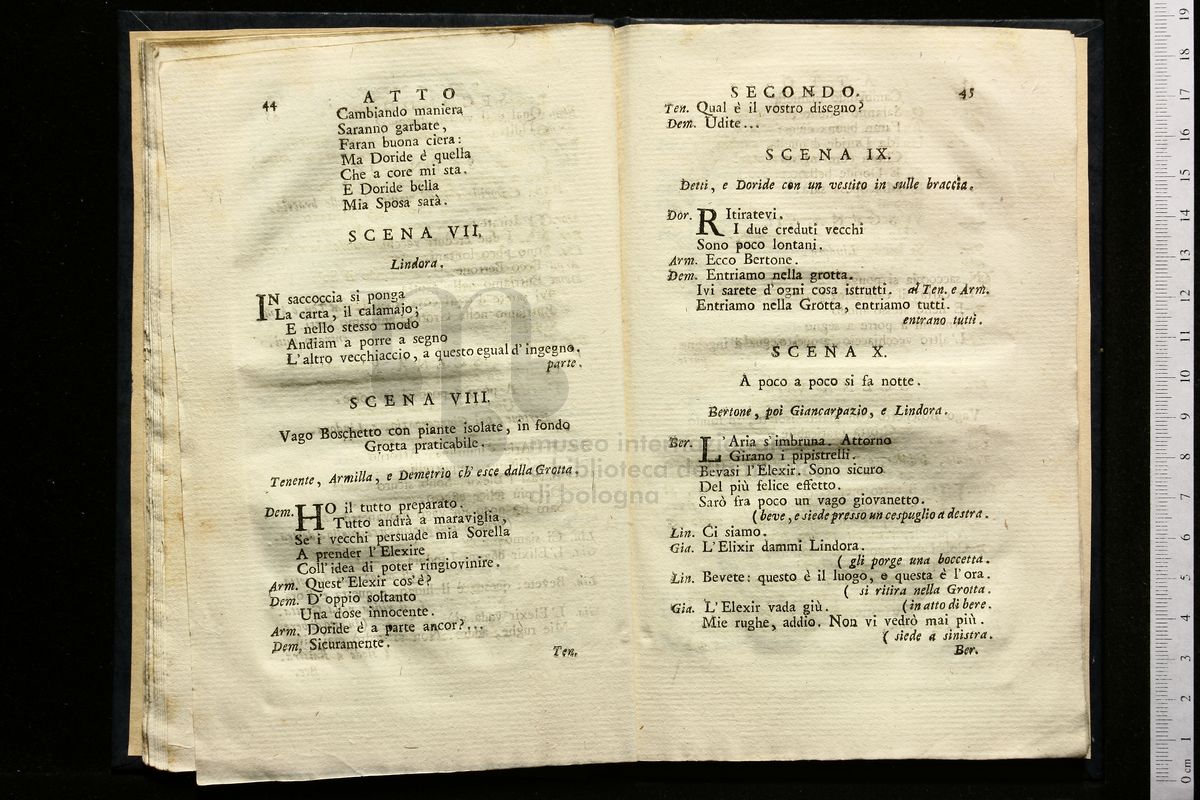 44
ATTO
Cambiando maniera
Saranno garbate,
Faran buona ciera:
Ma Doride è quella
Che a core mi sta.
E Doride bella
Mia Sposa sarà.
SCENA VII.
Lindora.
IN saccoccia si ponga
La carta, il calamajo;
E nello stesso modo
Andiam a porre a segno
L'altro vecchiaccio, a questo egual d'ingegno.
parte.
SCENA VIII.
Vago Boschetto con piante isolate, in fondo
Grotta praticabile.
Tenente, Armilla, e Demetrio ch'esce dalla Grotta.
Dem. HO il tutto preparato.
Tutto andrà a maraviglia,
Se i vecchi persuade mia Sorella
A prender l'Elexire
Coll'idea di poter ringiovinire.
Arm. Quest'Elexir cos'è?
Dem. D'oppio soltanto
Una dose innocente.
Arm. Doride è a parte ancor?...
Dem. Sicuramente.
Ten.
SECONDO.
45
Ten. Qual è il vostro disegno?
Dem. Udite...
SCENA IX.
Detti, e Doride con un vestito in sulle braccia.
Dor. RItiratevi.
I due creduti vecchi
Sono poco lontani.
Arm. Ecco Bertone.
Dem. Entriamo nella grotta.
Ivi sarete d'ogni cosa istrutti. al Ten. e Arm.
Entriamo nella Grotta, entriamo tutti.
entrano tutti.
SCENA X.
A poco a poco si fa notte.
Bertone, poi Giancarpazio, e Lindora.
Ber. L'Aria s'imbruna. Attorno
Girano i pipistrelli.
Bevasi l'Elexir. Sono sicuro
Del più felice effetto.
Sarò fra poco un vago giovanetto.
(beve, e siede presso un cespuglio a destra.
Lin. Ci siamo.
Gia. L'Elixir dammi Lindora.
( gli porge una boccetta.
Lin. Bevete: questo è il luogo, e questa è l'ora.
( si ritira nella Grotta.
Gia. L'Elexir vada giù. (in atto di bere.
Mie rughe, addio. Non vi vedrò mai più.
( siede a sinistra.
Ber.
museo inter
biblioteca de
di bologna
0 cm 1 2 3 4 5 6 7 8 9 10 11 12 13 14 15 16 17 18 19